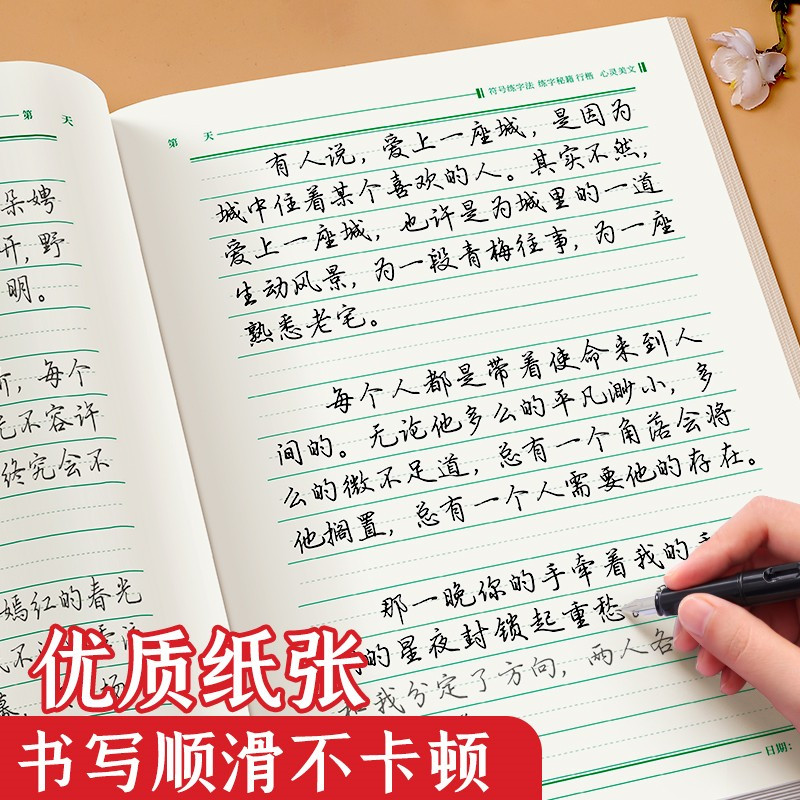 第 天
朵娉
开,野
明。
折,每个
无不容许
终究会不
嫣红的春光
第 天
符号练字法 练字秘籍 行楷 心灵美文
有人说,爱上一座城,是因为
城中住着某个喜欢的人。其实不然,
爱上一座城,也许是为城里的一道
生动风景,为一段青梅往事,为一座
熟悉老宅。
每个人都是带着使命来到人
间的。无论他多么的平凡渺小,多
么的微不足道,总有一个角落会将
他搁置,总有一个人需要他的存在。
那一晚你的手牵着我的手
的星夜封锁起重愁。
我分定了方向,两人各
日期:
优质纸张
书写顺滑不卡顿